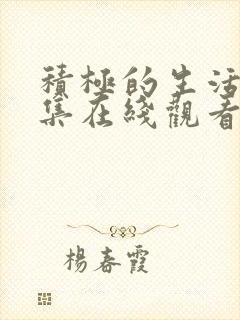 積極的生活
集在綫觀看
楊春霞